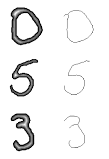 0 0
5 5
3 3